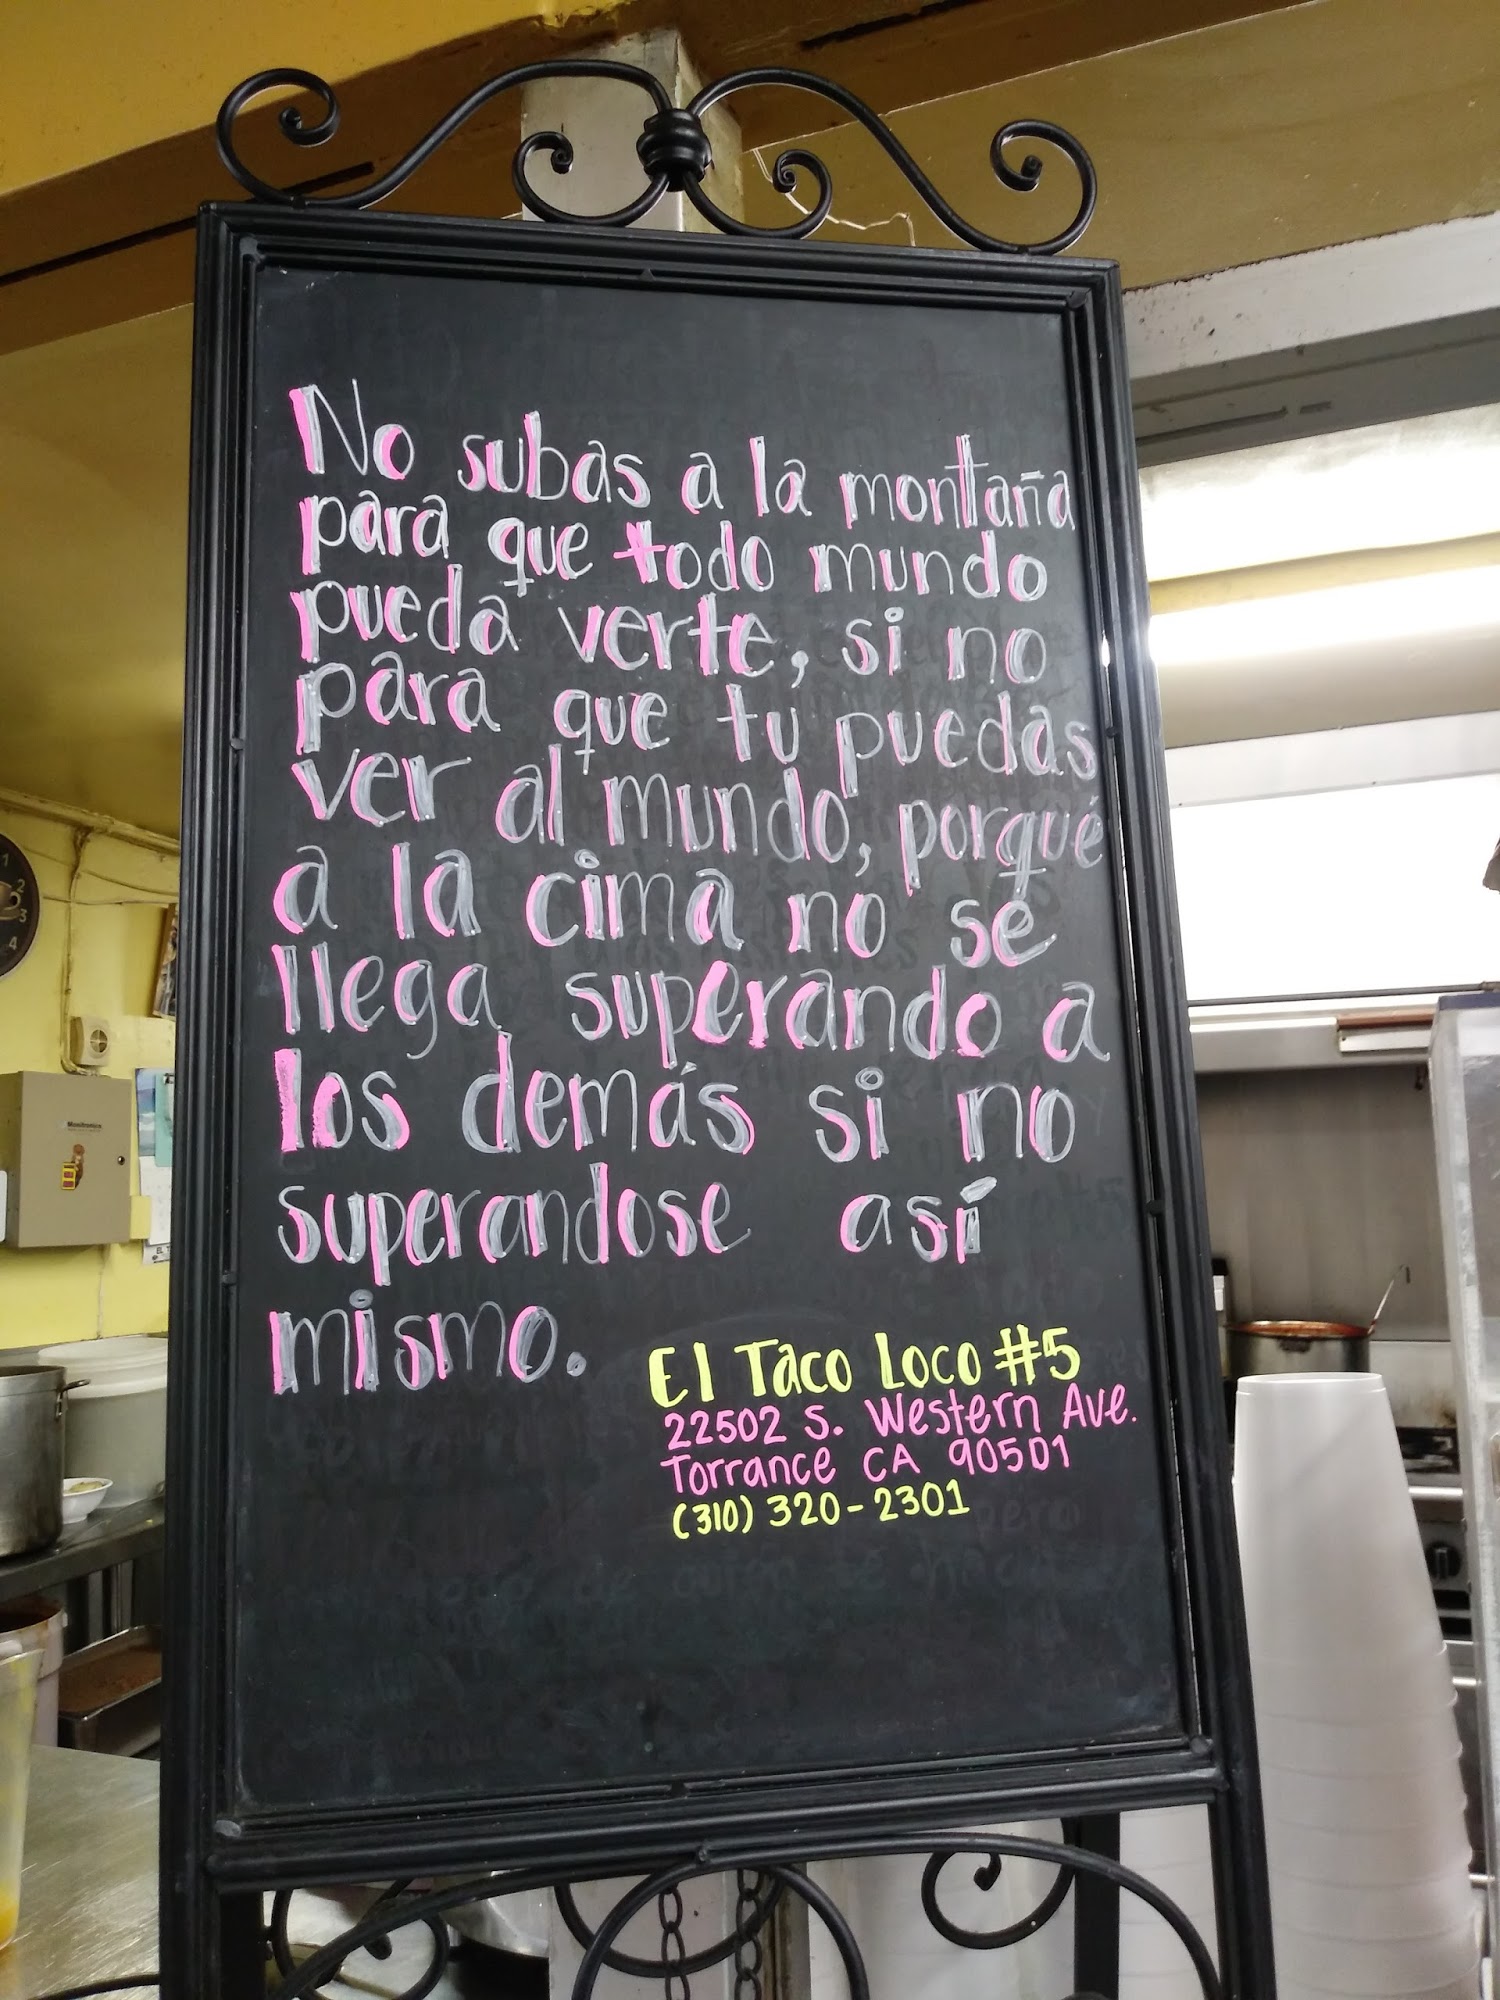 No subas a la montaña
para que todo mundo
pueda verte, si no
para que tu puedas
ver al mundo, porqué
a la cima no se
llega superando a
los demás si no
superandose así
mismo.
El Taco Loco #5
22502 S. Western Ave.
Torrance CA 90501
(310) 320-2301
1
2
3
4
Monitronics